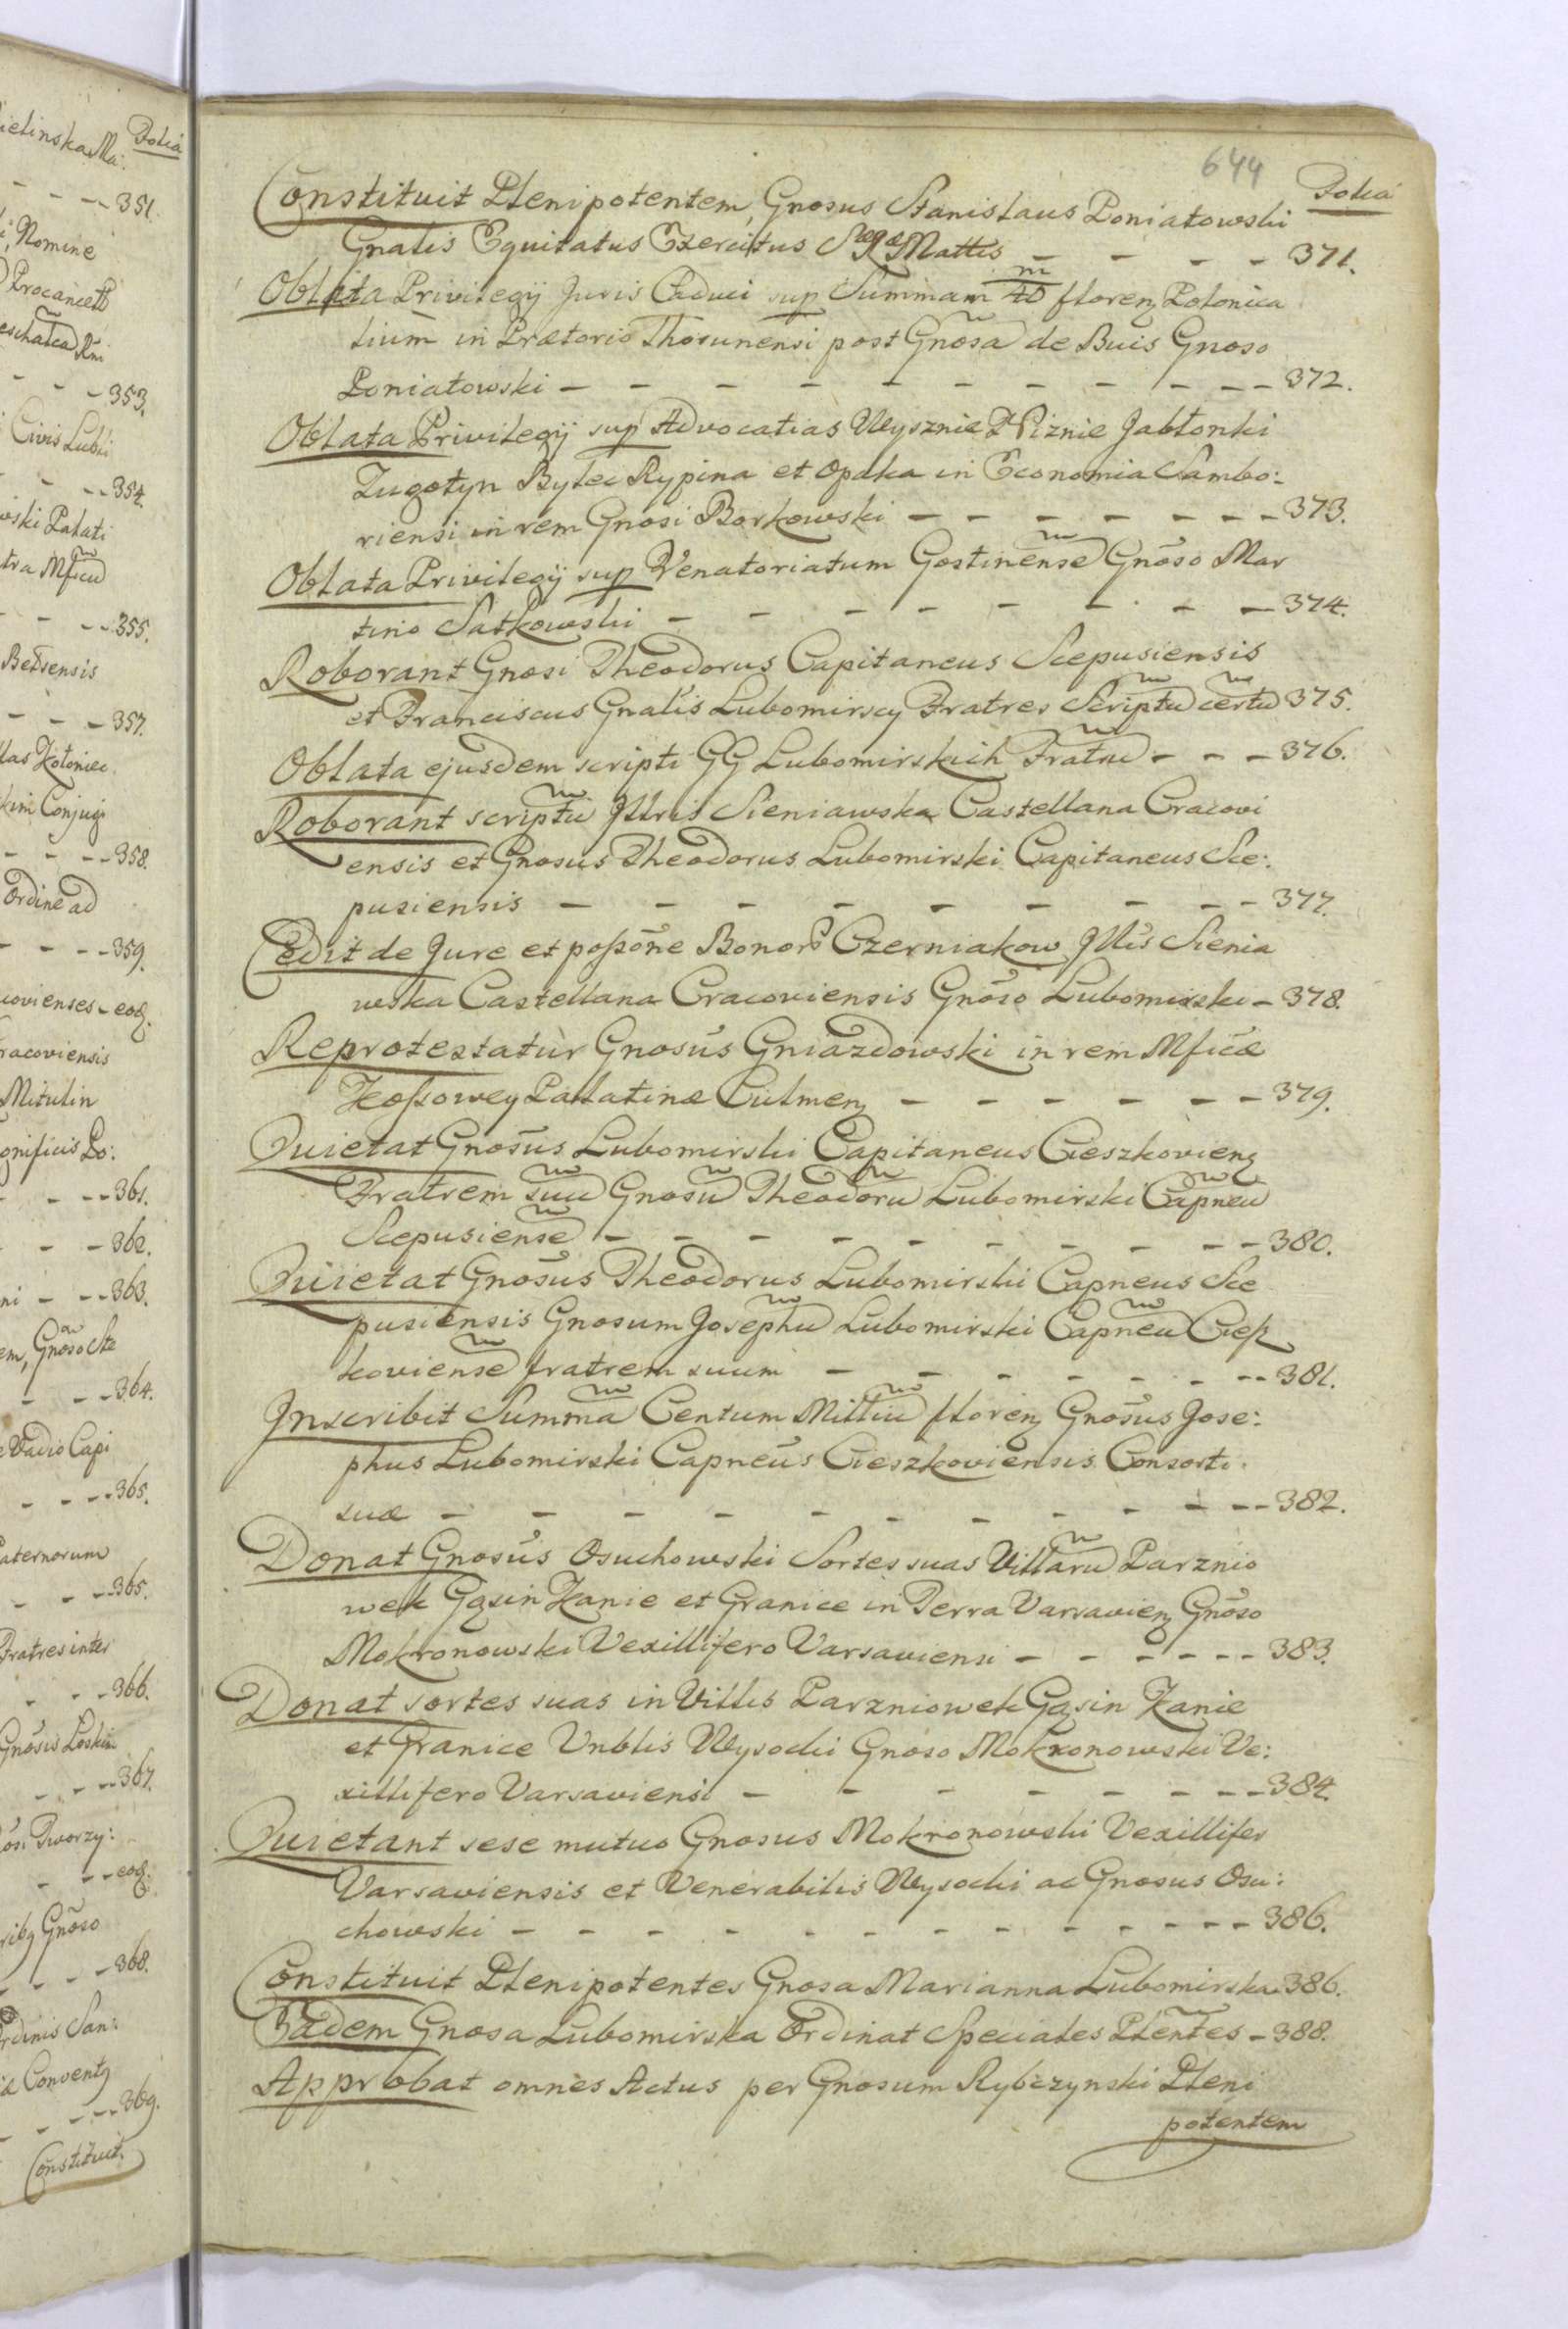 ielinska Ma: Folia
- - - 351.
i, Nomine
Procancell
eschalca Rni
- - - 353.
Civis Lubli
- - - 354.
wski Palati
tra Mficu
- - - 355.
Betsensis
- - - 357.
las Kotoniec
kim Conjugi
- - - 358.
Ordine ad
- - - 359.
covienses - eod.
racoviensis
Mitulin
gnificis Po:
- - - 361.
- - 362.
ni - - - 363.
em, Gnoso Ste
- - - 364.
e Vadio Capi
- - - 365.
aternorum
- - - 365.
Fratres inter
- - - 366.
Gnosis Loskie
- - - 367.
osi Dworzy:
- - - eod:
ribq Gnoso
- - - 368.
rdinis San:
ia Conventq
- - - 369.
Constituit.
644
Folia
Constituit Plenipotentem, Gnosus Stanislaus Poniatowski
Gnalis Equitatus Exercitus S Rgæ Mattis - - - - 371.
Oblata Privilegij Juris Caduci sup Summam 40 m florenq Polonica
lium in Prætorio Thorunensi post Gnosa de Buis Gnoso
Poniatowski - - - - - - - - - - - 372.
Oblata Privilegij sup Advocatias Wysznie Niznie Jabłonki
Zugotyn Bylec Rypina et Opaka in Economia Sambo:
riensi in rem Gnosi Borkowski - - - - - - - - 373.
Oblata Privilegij sup Venatoriatum Gostinense Gnoso Mar
tino Satkowski - - - - - - - - 374.
Roborant Gnosi Theodorus Capitaneus Scepusiensis
et Franciscus Gnalis Lubomirscy Fratres Scriptu certu 375.
Oblata ejusdem scripti GG Lubomirskich Fratru - - - 376.
Roborant scriptu Jllris Sieniawska Castellana Cracovi
ensis et Gnosus Theodorus Lubomirski Capitaneus Sce:
pusiensis - - - - - - - - - - 377.
Cedit de Jure et poßone Bonor Czerniakow Jllis Sienia
wska Castellana Cracoviensis Gnoso Lubomirski - 378.
Reprotestatur Gnosus Gniazdowski in rem Mficæ
Koßowey Pallatinæ Culmenq - - - - - - - 379.
Quietat Gnosus Lubomirski Capitaneus Cieszkovienq
Fratrem suu Gnosu Theodoru Lubomirski Capneu
Scepusiense - - - - - - - - - - 380.
Quietat Gnosus Theodorus Lubomirski Capneus Sce
pusiensis Gnosum Josephu Lubomirski Capneu Cieß
koviense fratrem suum - - - - - - - - 381.
Jnscribit Summa Centum Milliu florenq Gnosus Jose:
phus Lubomirski Capneus Cieszkoviensis Consorti
suæ - - - - - - - - - - - - 382.
Donat Gnosus Osuchowski Sortes suas Villaru Parznio
wek Gąsin Kanie et Granice in Terra Varsavienq Gnoso
Mokronowski Vexillifero Varsaviensi - - - - - - 383.
Donat sortes suas in Villis Parzniowek Gąsin Kanie
et Granice Vnblis Wysocki Gnoso Mokronowski Ve:
xillifero Varsaviensi - - - - - - - - 384.
Quietant sese mutuo Gnosus Mokronowski Vexillifer
Varsaviensis et Venerabilis Wysocki ac Gnosus Osu:
chowski - - - - - - - - - - - - 386.
Constituit Plenipotentes Gnosa Marianna Lubomirska 386.
Eadem Gnosa Lubomirska Ordinat Speciales Plentes - 388.
Approbat omnes Actus per Gnosum Rybczynski Pleni
potentem